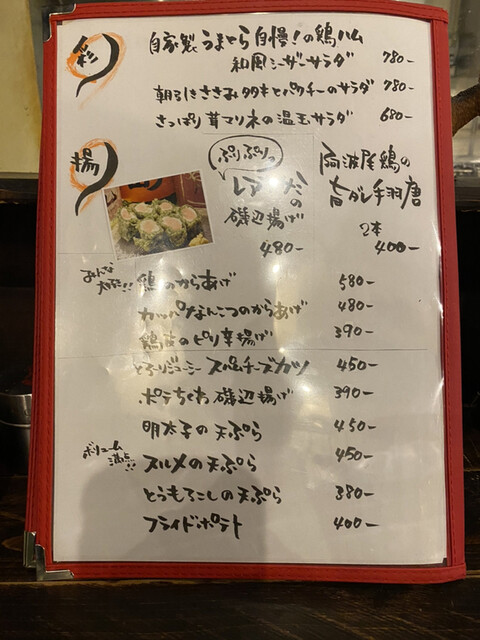 彩
自家製うまそら自慢!の鶏ハム
和風シーザーサラダ 780-
朝引きささみタタキとパクチーのサラダ 780-
さっぱり茸マリネの温玉サラダ 680-
揚
ぷりぷりっ
レア
磯辺揚げ
480-
阿波尾鶏の
手羽唐
2本
400-
みんな
大好き!!
鶏のからあげ 580-
カッパなんこつのからあげ 480-
鶏皮のピリ辛揚げ 390-
とろ〜りジューシー スパムチーズカツ 450-
ポテちくわ磯辺揚げ 390-
明太子の天ぷら 450-
ボリューム
満点!!
スルメの天ぷら 450-
とうもろこしの天ぷら 380-
フライドポテト 400-